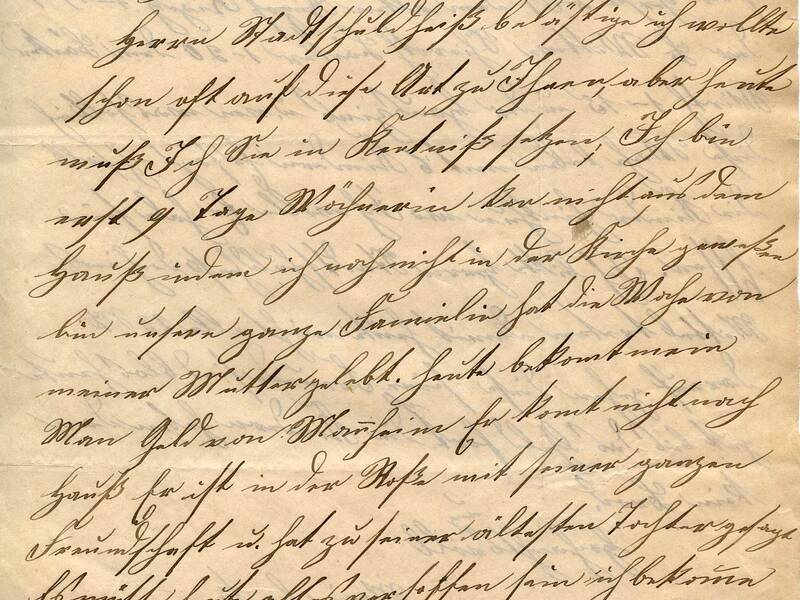 Herrn Stadtschuldheiß belästige ich wollte
schon oft auf diese Art zu Ihnen, aber heute
muß Ich Sie in Kentniß setzen, Ich bin
erst 9 Tage Wöchnerin kan nicht aus dem
Hauß indem ich noch nicht in der Kirche geweßen
bin unsere ganze Famielie hat die Woche von
meiner Mutter gelebt. heute bekomt mein
Man Geld von Manheim Er komt nicht nach
Hauß Er ist in der Roße mit seiner ganzen
Freundschaft u. hat zu seiner ältesten Tochter gesagt
heute alles versoffen sein ich bekome